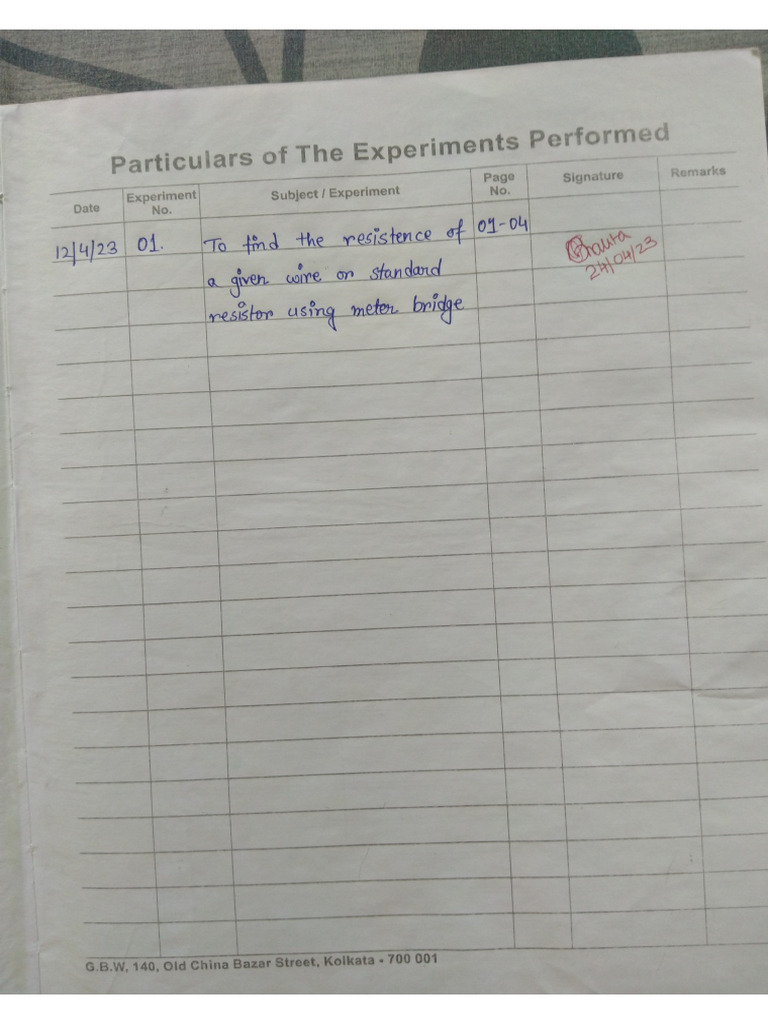 Particulars of The Experiments Performed
Date Experiment No. Subject / Experiment Page No. Signature Remarks
12/4/23 01. To find the resistence of 01-04
a given wire or standard
resistor using meter bridge
27/04/23
G.B.W, 140, Old China Bazar Street, Kolkata - 700 001